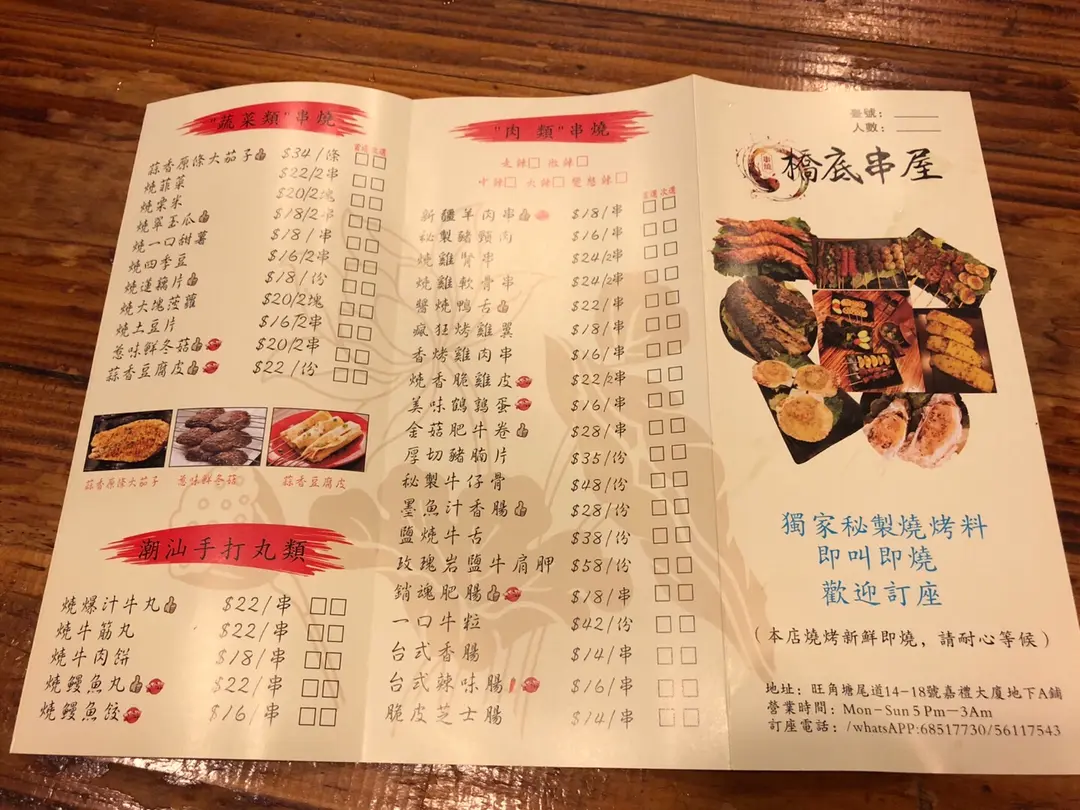 "蔬菜類"串燒
首選 次選
蒜香原條大茄子 $34/條
燒韮菜 $22/2串
燒粟米 $20/2塊
燒翠玉瓜 $18/2串
燒一口甜薯 $18/串
燒四季豆 $16/2串
燒蓮藕片 $18/份
燒大塊菠蘿 $20/2塊
燒土豆片 $16/2串
惹味鮮冬菇 $20/2串
蒜香豆腐皮 $22/份
蒜香原條大茄子 惹味鮮冬菇 蒜香豆腐皮
潮汕手打丸類
燒爆汁牛丸 $22/串
燒牛筋丸 $22/串
燒牛肉餅 $18/串
燒鰻魚丸 $22/串
燒鰻魚餃 $16/串
"肉 類"串燒
走辣 微辣
中辣 大辣 變態辣
首選 次選
新疆羊肉串 $18/串
秘製豬頸肉 $16/串
燒雞腎串 $24/2串
燒雞軟骨串 $24/2串
醬燒鴨舌 $22/串
瘋狂烤雞翼 $18/串
香烤雞肉串 $16/串
燒香脆雞皮 $22/2串
美味鵪鶉蛋 $16/串
金菇肥牛卷 $28/串
厚切豬腩片 $35/份
秘製牛仔骨 $48/份
墨魚汁香腸 $28/份
鹽燒牛舌 $38/份
玫瑰岩鹽牛肩胛 $58/份
銷魂肥腸 $18/串
一口牛粒 $42/份
台式香腸 $14/串
台式辣味腸 $16/串
脆皮芝士腸 $14/串
臺號：
人數：
串燒
橋底串屋
獨家秘製燒烤料
即叫即燒
歡迎訂座
（本店燒烤新鮮即燒，請耐心等候）
地址：旺角塘尾道14-18號嘉禮大廈地下A鋪
營業時間：Mon-Sun 5 Pm-3Am
訂座電話：/whatsAPP:68517730/56117543